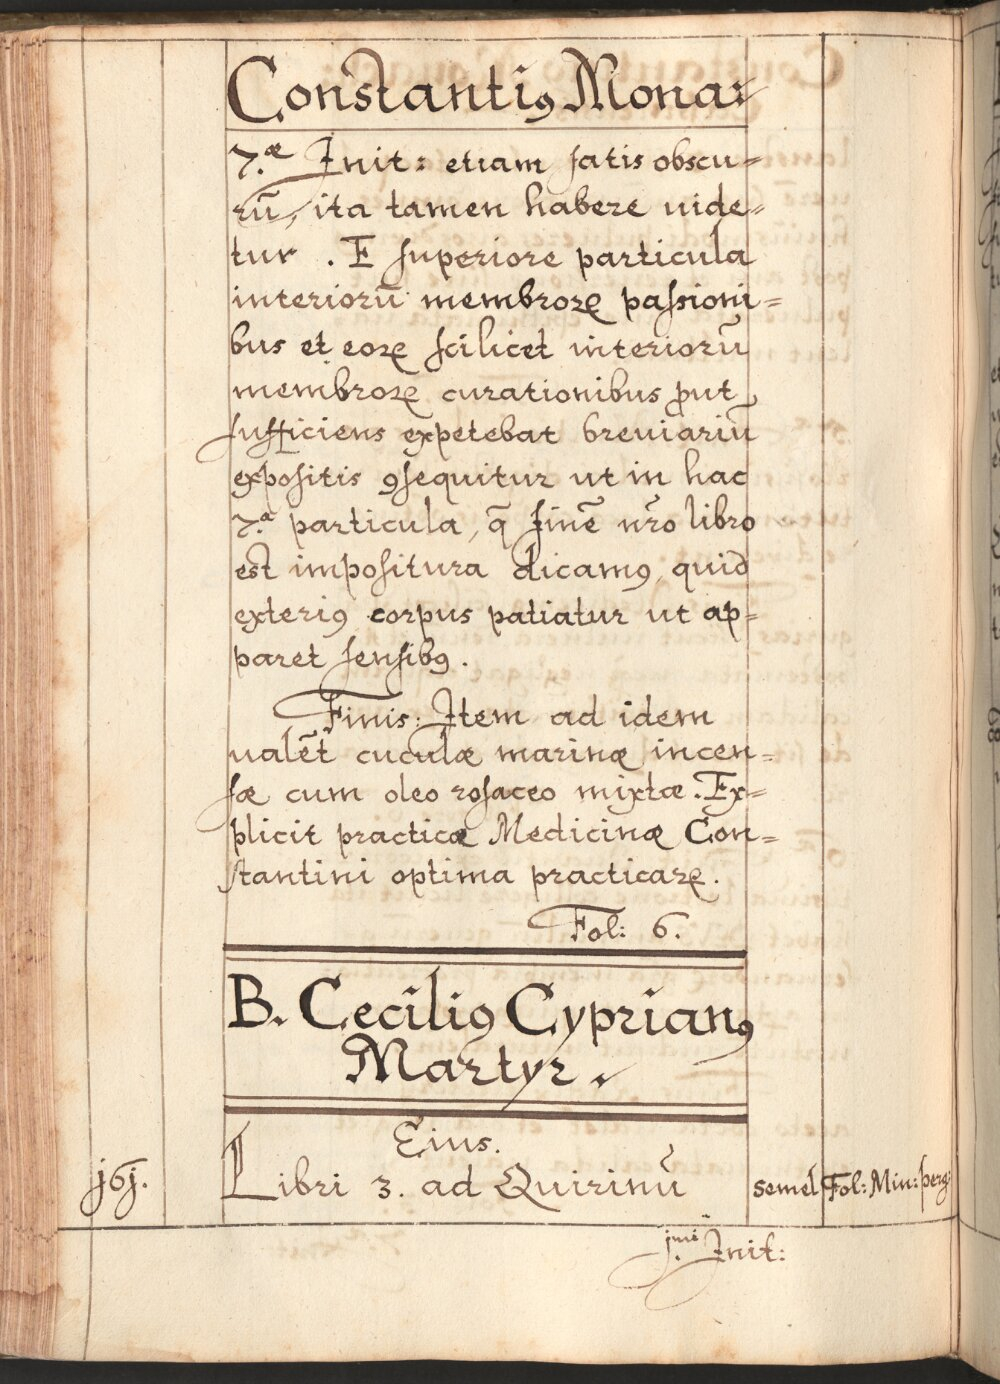 Constantiꝰ Monar
7.æ Init: etiam satis obscu=
rū, ita tamen habere uide=
tur . E superiore particula
interiorū membroꝝ passioni=
bus et eoꝝ scilicet interiorū
membroꝝ curationibus ꝓut
sufficiens expetebat breviariū
expositis ꝯsequitur ut in hac
7.a particula, q̄ finē nr̄o libro
est impositura dicamꝰ, quid
exteriꝰ corpus patiatur ut ap=
paret sensibꝰ.
Finis: Item ad idem
valēt cuculæ marinæ incen=
sæ cum oleo rosaceo mixtæ. Ex=
plicit practicæ Medicinæ Con=
stantini optima practicaꝝ.
Fol: 6.
B. Ceciliꝰ Cyprianꝰ
Martyr.
Eius.
j6j. Libri 3. ad Quirinū semel Fol: Min: perg:
jmi Init: